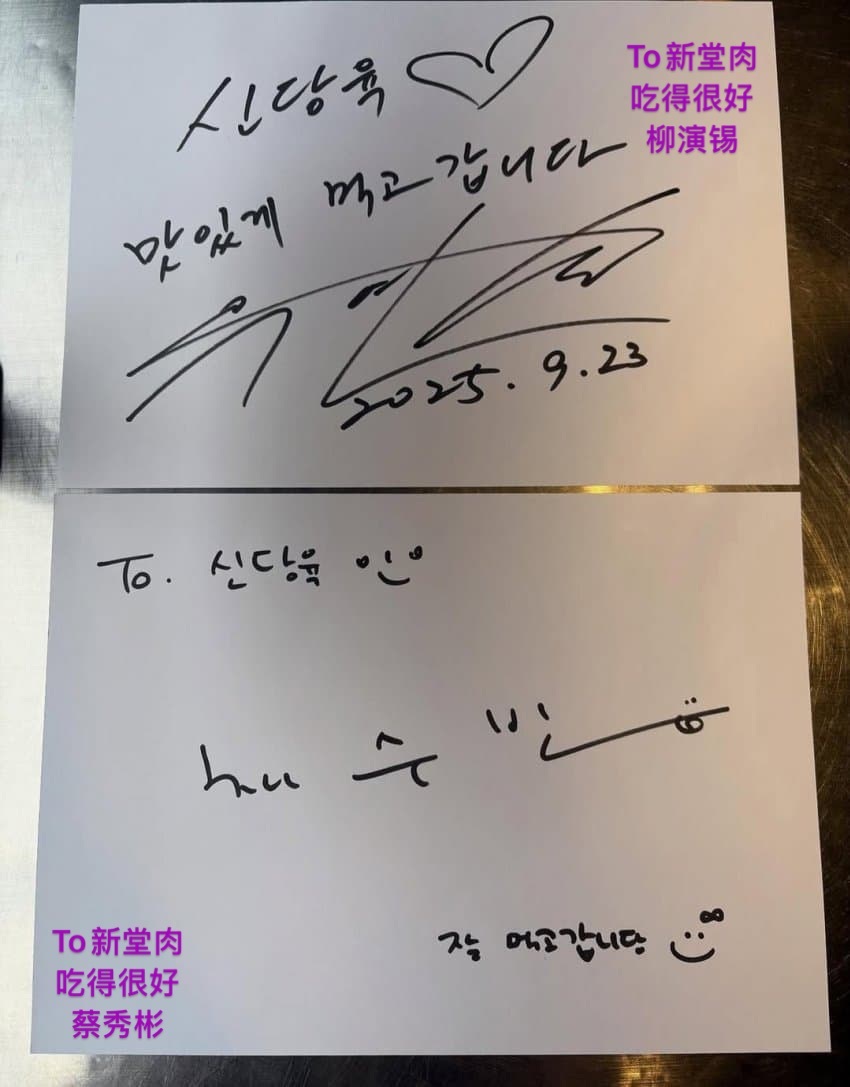 신당육
맛있게 먹고갑니다
2025. 9. 23
To新堂肉
吃得很好
柳演锡
To. 신당육
채수빈
잘 먹고갑니당
To新堂肉
吃得很好
蔡秀彬